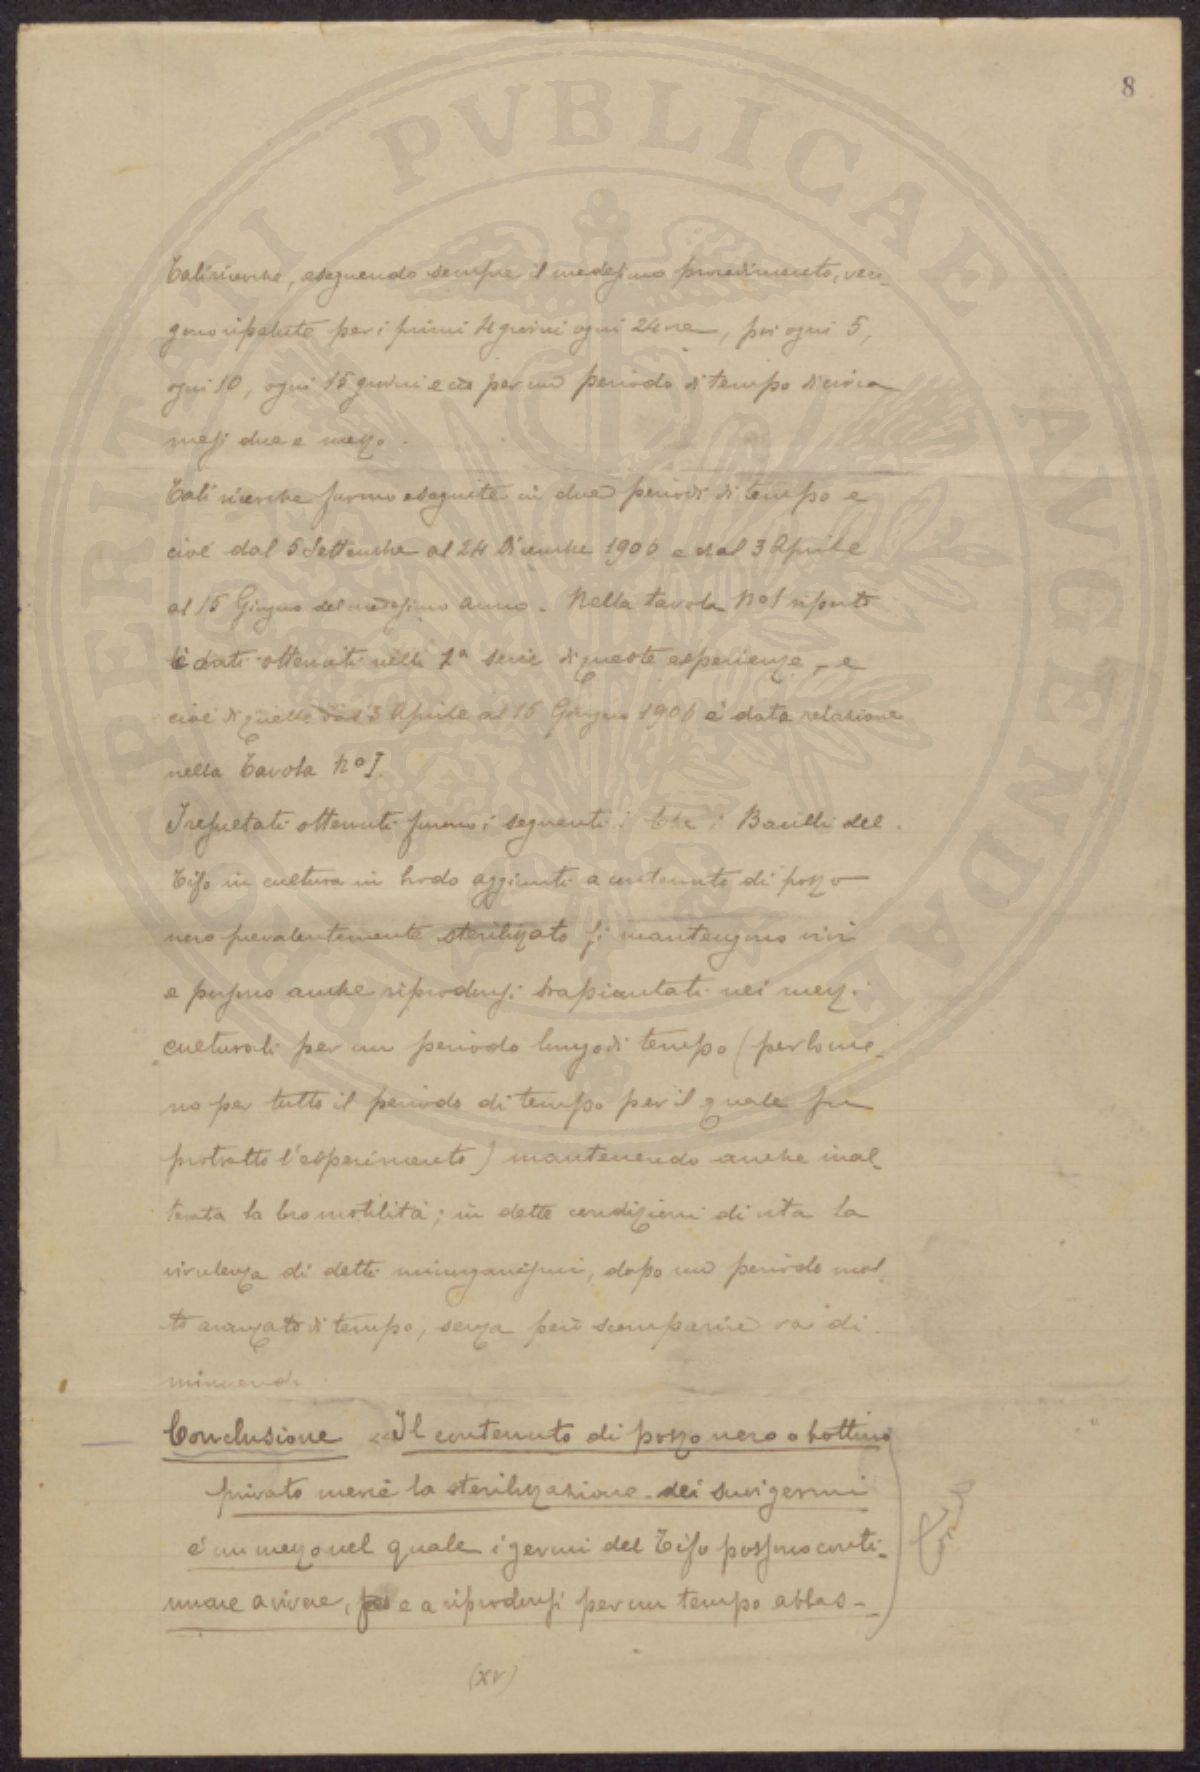 8
Tali ricerche, eseguendo sempre il medesimo procedimento, ven-
gono ripetute per i primi 4 giorni ogni 24 ore, poi ogni 5,
ogni 10, ogni 15 giorni e ciò per un periodo di tempo di circa
mesi due e mezzo.
Tali ricerche furono eseguite in due periodi di tempo e
cioè dal 5 Settembre al 24 Dicembre 1906 e dal 3 Aprile
al 15 Giugno del medesimo anno. Nella tavola No 1 riporto
i dati ottenuti nella 1a serie di queste esperienze, e
cioè di quelle dal 3 Aprile al 15 Giugno 1906 è data relazione
nella Tavola No I.
I resultati ottenuti furono i seguenti: Che i Bacilli del
Tifo in cultura in brodo aggiunti a contenuto di pozzo
nero prevalentemente sterilizzato si mantengono vivi
e possono anche riprodursi trapiantati nei mezzi
culturali per un periodo lungo di tempo (per lo me-
no per tutto il periodo di tempo per il quale fu
protratto l'esperimento) mantenendo anche inal-
terata la loro motilità; in dette condizioni di vita la
virulenza di detti microrganismi, dopo un periodo mol-
to avanzato di tempo, senza però scomparire va di
minuendo.
Conclusione Il contenuto di pozzo nero o bottino
privato mercè la sterilizzazione dei suoi germi
è un mezzo nel quale i germi del Tifo possono conti-
nuare a vivere, e a riprodursi per un tempo abbas-
(XV)
PROSPERITATI PVBLICAE AVGENDAE